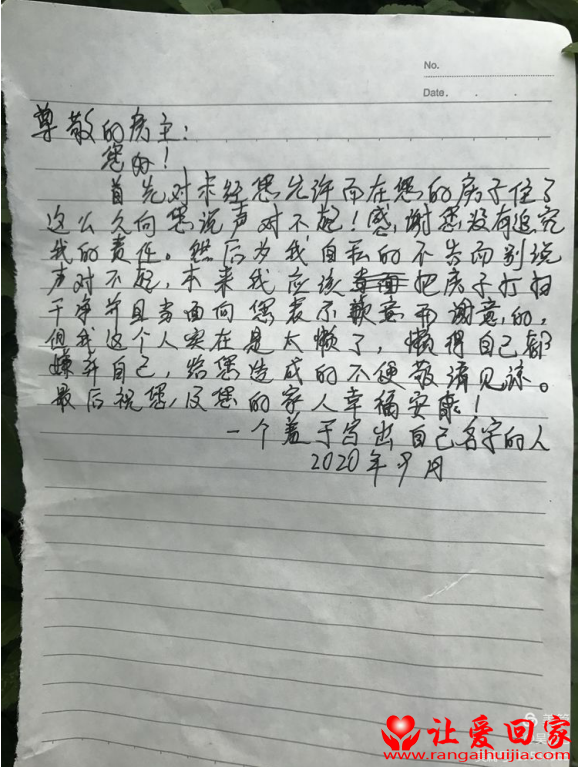 No.
Date. . .
尊敬的房主:
您好!
首先对未经您允许而在您的房子住了
这么久向您说声对不起!感谢您没有追究
我的责任。然后为我自私的不告而别说
声对不起,本来我应该把房子打扫
干净并且当面向您表示歉意和谢意的,
但我这个人实在是太懒了,懒得自己都
嫌弃自己,给您造成的不便敬请见谅。
最后祝您及您的家人幸福安康!
一个羞于写出自己名字的人
2020年9月
让爱回家
www.rangaihuijia.com